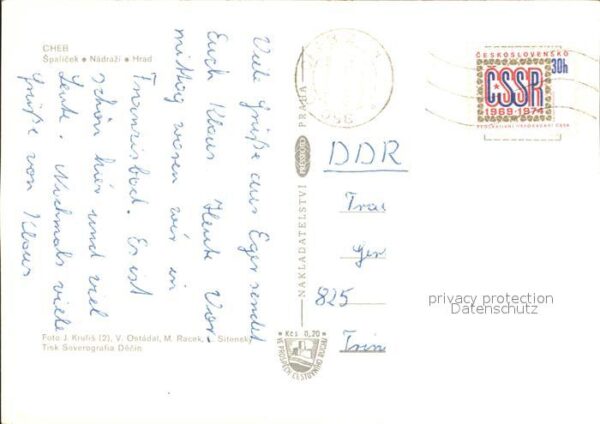 CHEB
Špalíček • Nádraží • Hrad
Viele Grüße aus Eger sendet
Euch Klaus. Heute Vor-
mittag waren wir in
Franzisbad. Es ist
schön hier und viel
Leute. Nochmals viele
Grüße von Klaus
Foto J. Kruliš (2), V. Ostádal, M. Racek, J. Sitenský
Tisk Severografia Děčín
NAKLADATELSTVÍ PRAHA
PRESSFOTO
Kčs 0,20
VE PROSPĚCH CESTOVNÍHO RUCHU
ČESKOSLOVENSKO
30h
ČSSR
1969-1974
DDR
Frau
Ger
825
privacy protection
Datenschutz